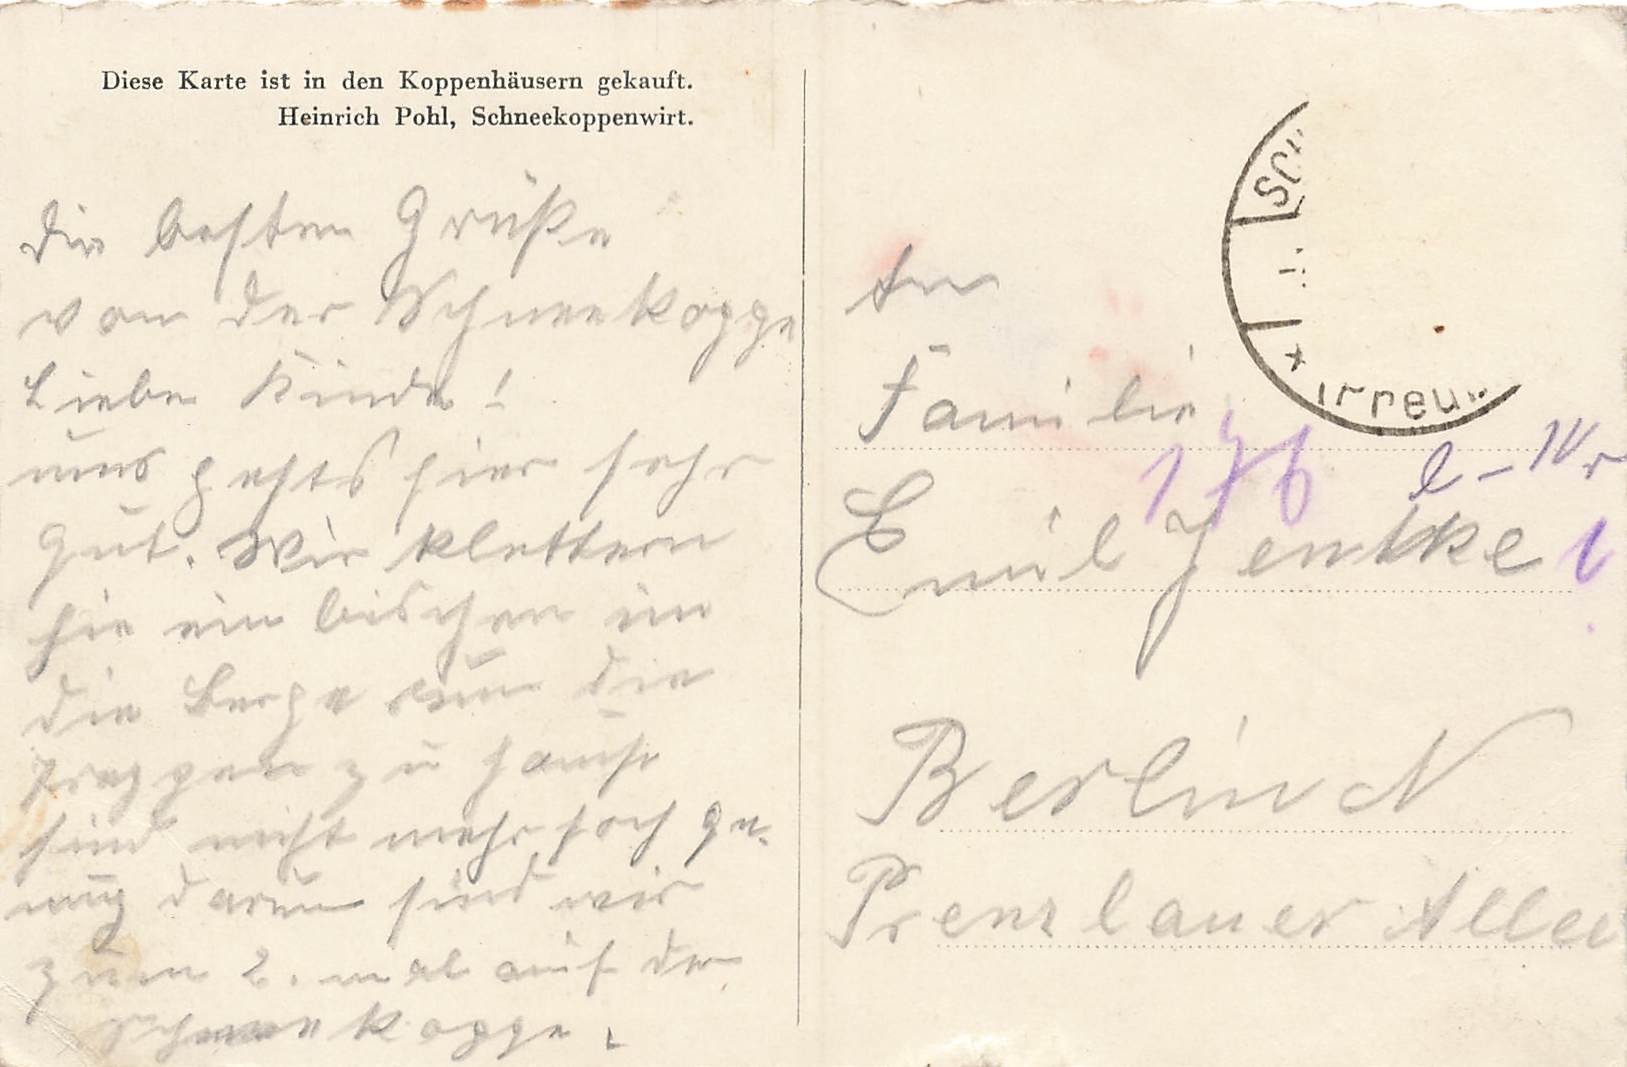 Diese Karte ist in den Koppenhäusern gekauft.
Heinrich Pohl, Schneekoppenwirt.
Die besten Grüße
von der Schneekoppe
Liebe Kinder!
uns gehts hier sehr
gut. Wir klettern
hie ein bischen in
die Berge rum die
Treppen zu Hause
sind nicht mehr hoch ge-
nug darum sind wir
zum 2. mal auf der
Schneekoppe.
An
Familie
176
Emil Jentke
Berlin N
Prenzlauer Allee